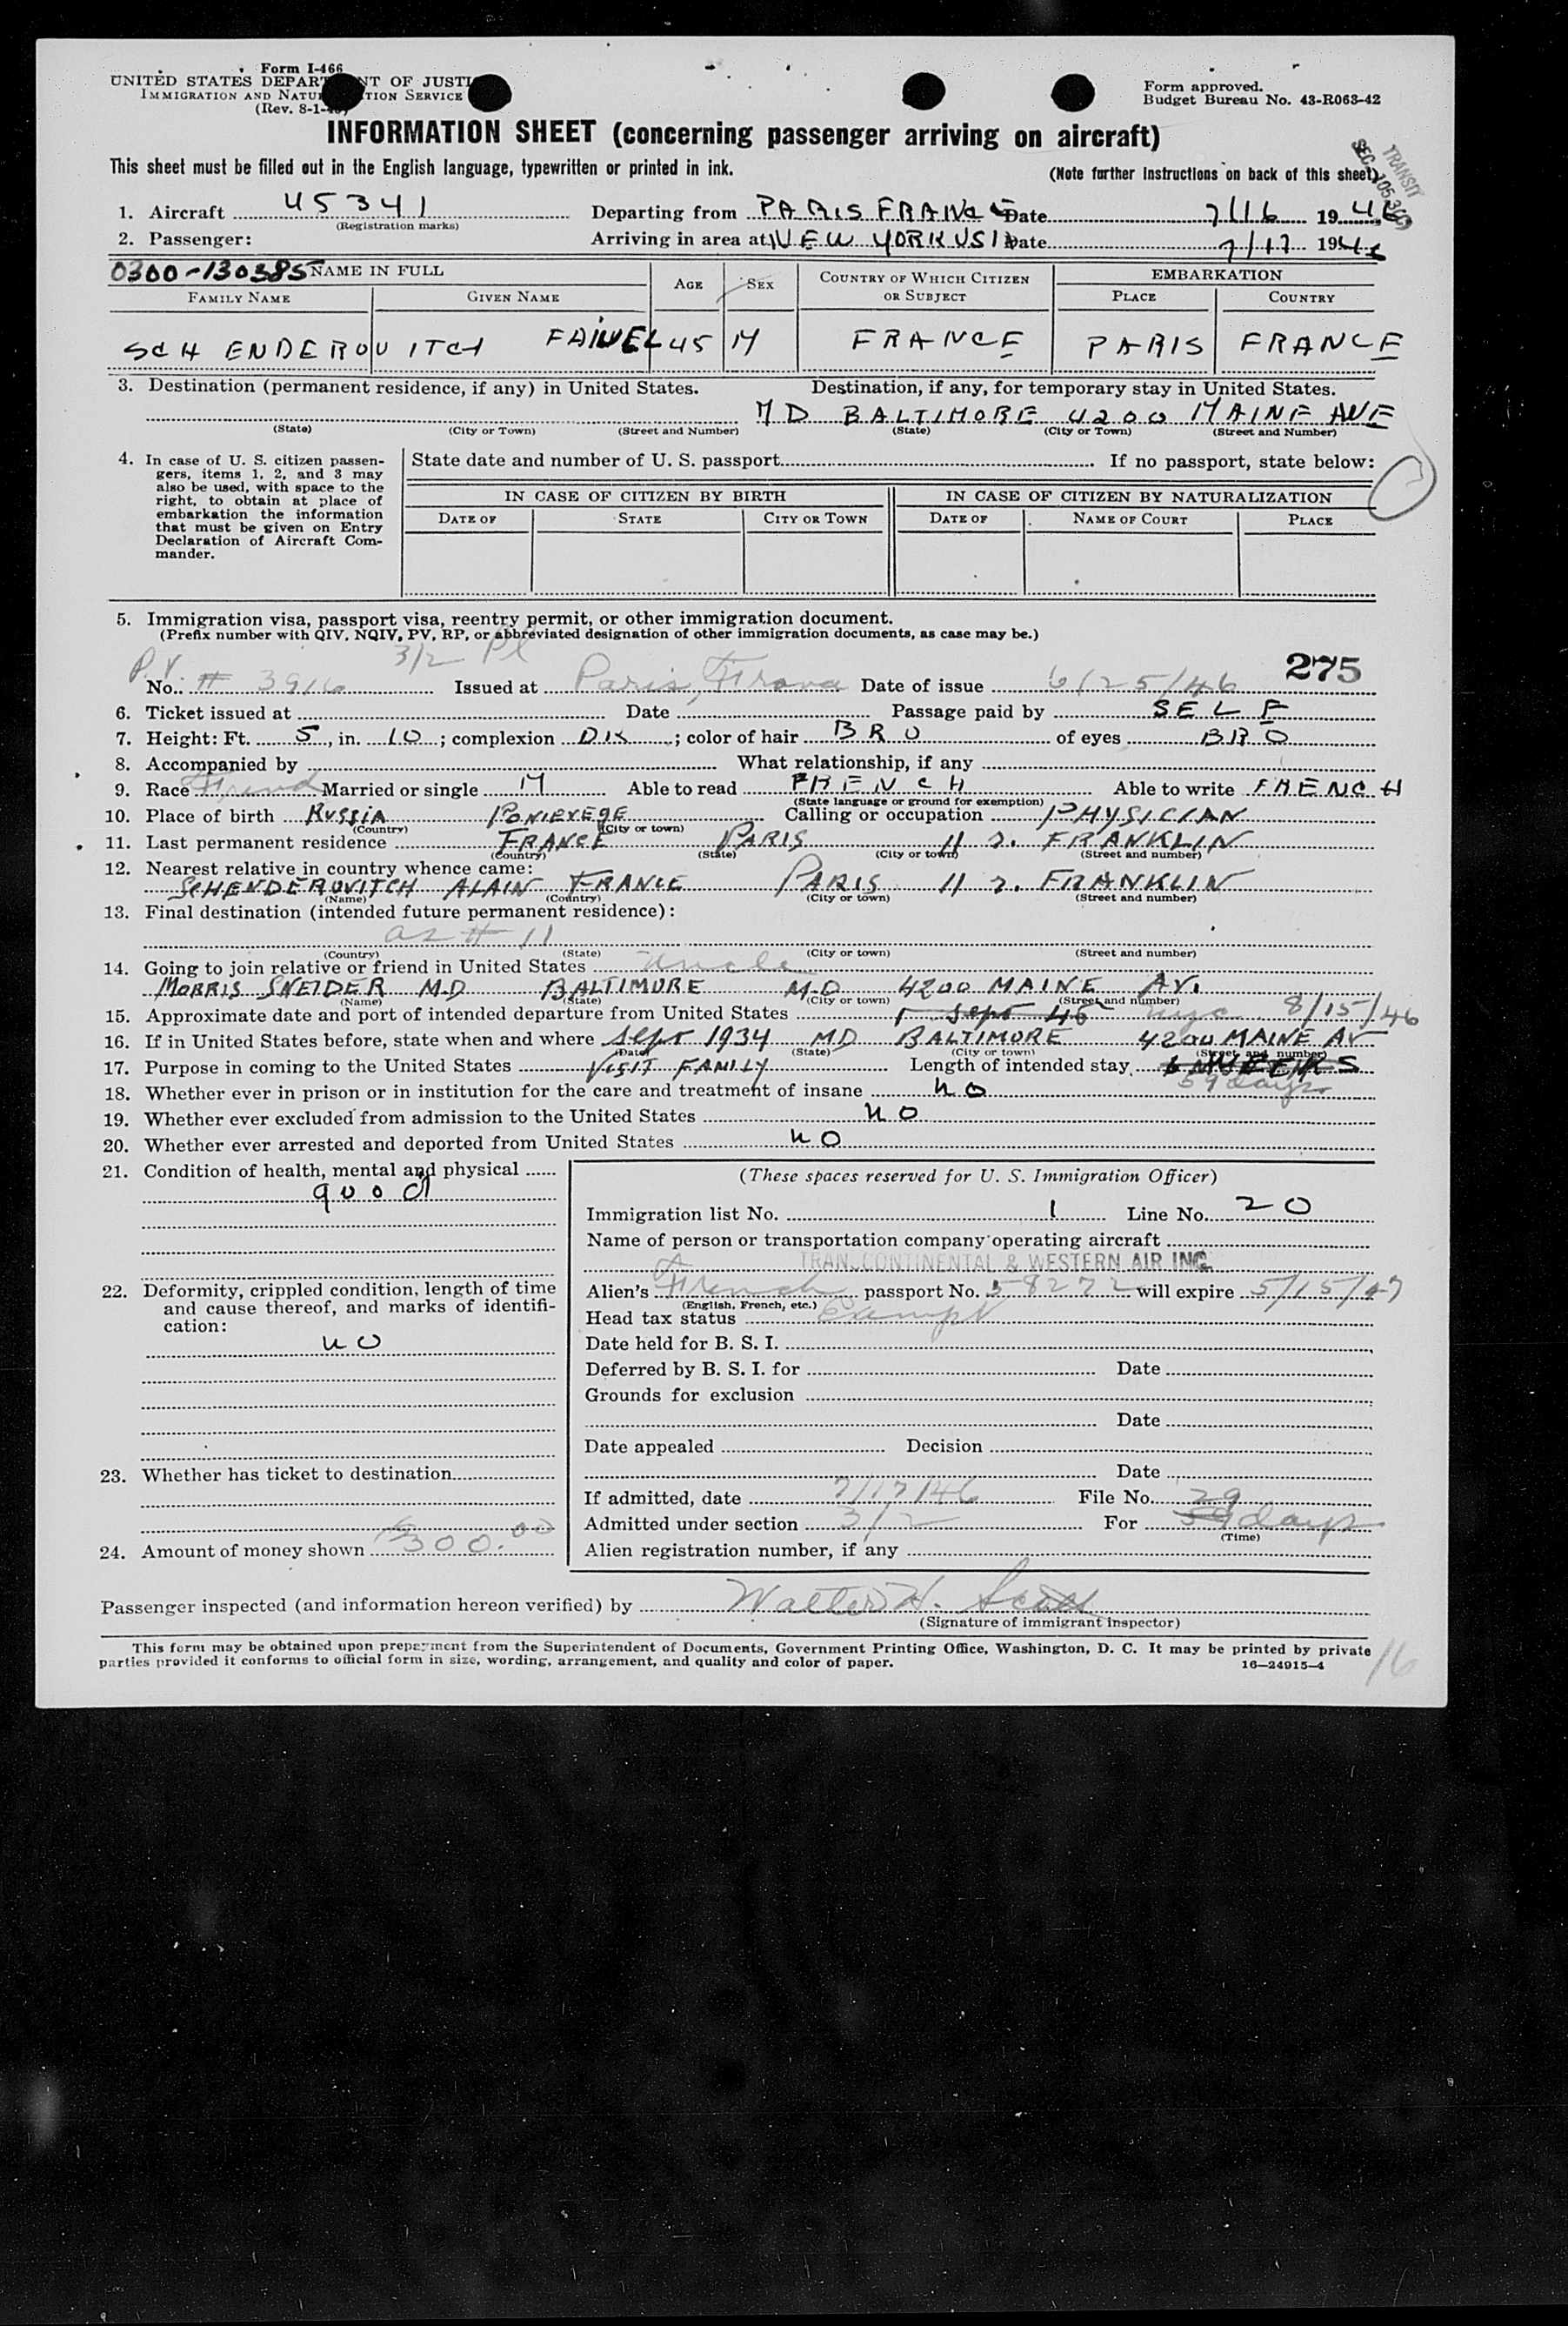 Form I-466
UNITED STATES DEPARTMENT OF JUSTICE
IMMIGRATION AND NATURALIZATION SERVICE
(Rev. 8-1-
Form approved.
Budget Bureau No. 43-R063-42
INFORMATION SHEET (concerning passenger arriving on aircraft)
This sheet must be filled out in the English language, typewritten or printed in ink. (Note further instructions on back of this sheet)
TRANSIT
SEC.
1. Aircraft 45341 Departing from PARIS FRANCE Date 7/16 1946
(Registration marks)
2. Passenger: Arriving in area at NEW YORK USA Date 7/17 1946
0300-130385 NAME IN FULL AGE SEX COUNTRY OF WHICH CITIZEN OR SUBJECT EMBARKATION
FAMILY NAME GIVEN NAME PLACE COUNTRY
SCHENDEROVITCH FAIVEL 45 M FRANCE PARIS FRANCE
3. Destination (permanent residence, if any) in United States. Destination, if any, for temporary stay in United States.
MD BALTIMORE 4200 MAINE AVE
(State) (City or Town) (Street and Number) (State) (City or Town) (Street and Number)
4. In case of U. S. citizen passengers, items 1, 2, and 3 may also be used, with space to the right, to obtain at place of embarkation the information that must be given on Entry Declaration of Aircraft Commander.
State date and number of U. S. passport If no passport, state below:
IN CASE OF CITIZEN BY BIRTH IN CASE OF CITIZEN BY NATURALIZATION
DATE OF STATE CITY OR TOWN DATE OF NAME OF COURT PLACE
5. Immigration visa, passport visa, reentry permit, or other immigration document.
(Prefix number with QIV, NQIV, PV, RP, or abbreviated designation of other immigration documents, as case may be.)
P.V. 3/2 Pl 275
No. # 3916 Issued at Paris, France Date of issue 6/25/46
6. Ticket issued at Date Passage paid by SELF
7. Height: Ft. 5, in. 10; complexion DK; color of hair BRO of eyes BRO
8. Accompanied by What relationship, if any
9. Race French Married or single M Able to read FRENCH Able to write FRENCH
(State language or ground for exemption)
10. Place of birth RUSSIA PONIEVEGE Calling or occupation PHYSICIAN
(Country) (City or town)
11. Last permanent residence FRANCE PARIS 11 r. FRANKLIN
(Country) (State) (City or town) (Street and number)
12. Nearest relative in country whence came:
SCHENDEROVITCH ALAIN FRANCE PARIS 11 r. FRANKLIN
(Name) (Country) (City or town) (Street and number)
13. Final destination (intended future permanent residence):
as # 11
(Country) (State) (City or town) (Street and number)
14. Going to join relative or friend in United States Uncle
MORRIS SNEIDER MD BALTIMORE MD 4200 MAINE AV.
(Name) (State) (City or town) (Street and number)
15. Approximate date and port of intended departure from United States 1 Sept 46 nyc 8/15/46
16. If in United States before, state when and where Sept 1934 MD BALTIMORE 4200 MAINE AV
(Date) (State) (City or town) (Street and number)
17. Purpose in coming to the United States VISIT FAMILY Length of intended stay 6 WEEKS
59 days
18. Whether ever in prison or in institution for the care and treatment of insane no
19. Whether ever excluded from admission to the United States no
20. Whether ever arrested and deported from United States no
21. Condition of health, mental and physical
good
22. Deformity, crippled condition, length of time and cause thereof, and marks of identification:
no
23. Whether has ticket to destination
24. Amount of money shown $300.00
(These spaces reserved for U. S. Immigration Officer)
Immigration list No. 1 Line No. 20
Name of person or transportation company operating aircraft
TRANSCONTINENTAL & WESTERN AIR INC.
Alien's French passport No. 58272 will expire 5/15/47
(English, French, etc.)
Head tax status Exempt
Date held for B. S. I.
Deferred by B. S. I. for Date
Grounds for exclusion
Date
Date appealed Decision
Date
If admitted, date 7/17/46 File No.
29
Admitted under section 3/2 For 59 days
(Time)
Alien registration number, if any
Passenger inspected (and information hereon verified) by Walter H. Scott
(Signature of immigrant inspector)
This form may be obtained upon prepayment from the Superintendent of Documents, Government Printing Office, Washington, D. C. It may be printed by private
parties provided it conforms to official form in size, wording, arrangement, and quality and color of paper. 16—24915-4
16